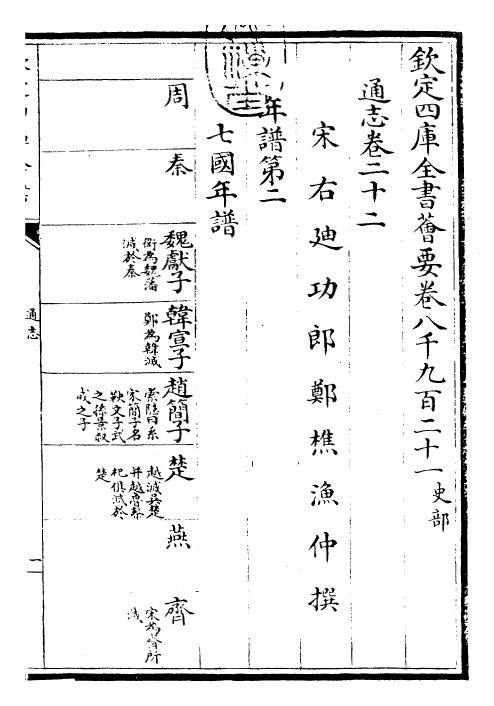 欽定四庫全書薈要卷八千九百二十一 史部
通志卷二十二
宋右廸功郎鄭樵漁仲撰
年譜第二
七國年譜
周
秦
魏獻子
衛為魏藩
滅於秦
韓宣子
鄭為韓滅
趙簡子
索隠曰系
宋簡子名
鞅文子武
之孫景叔
成之子
楚
越滅吳楚
并越魯蔡
杞俱滅於
楚
燕
齊
宋為齊所
滅
通志
一